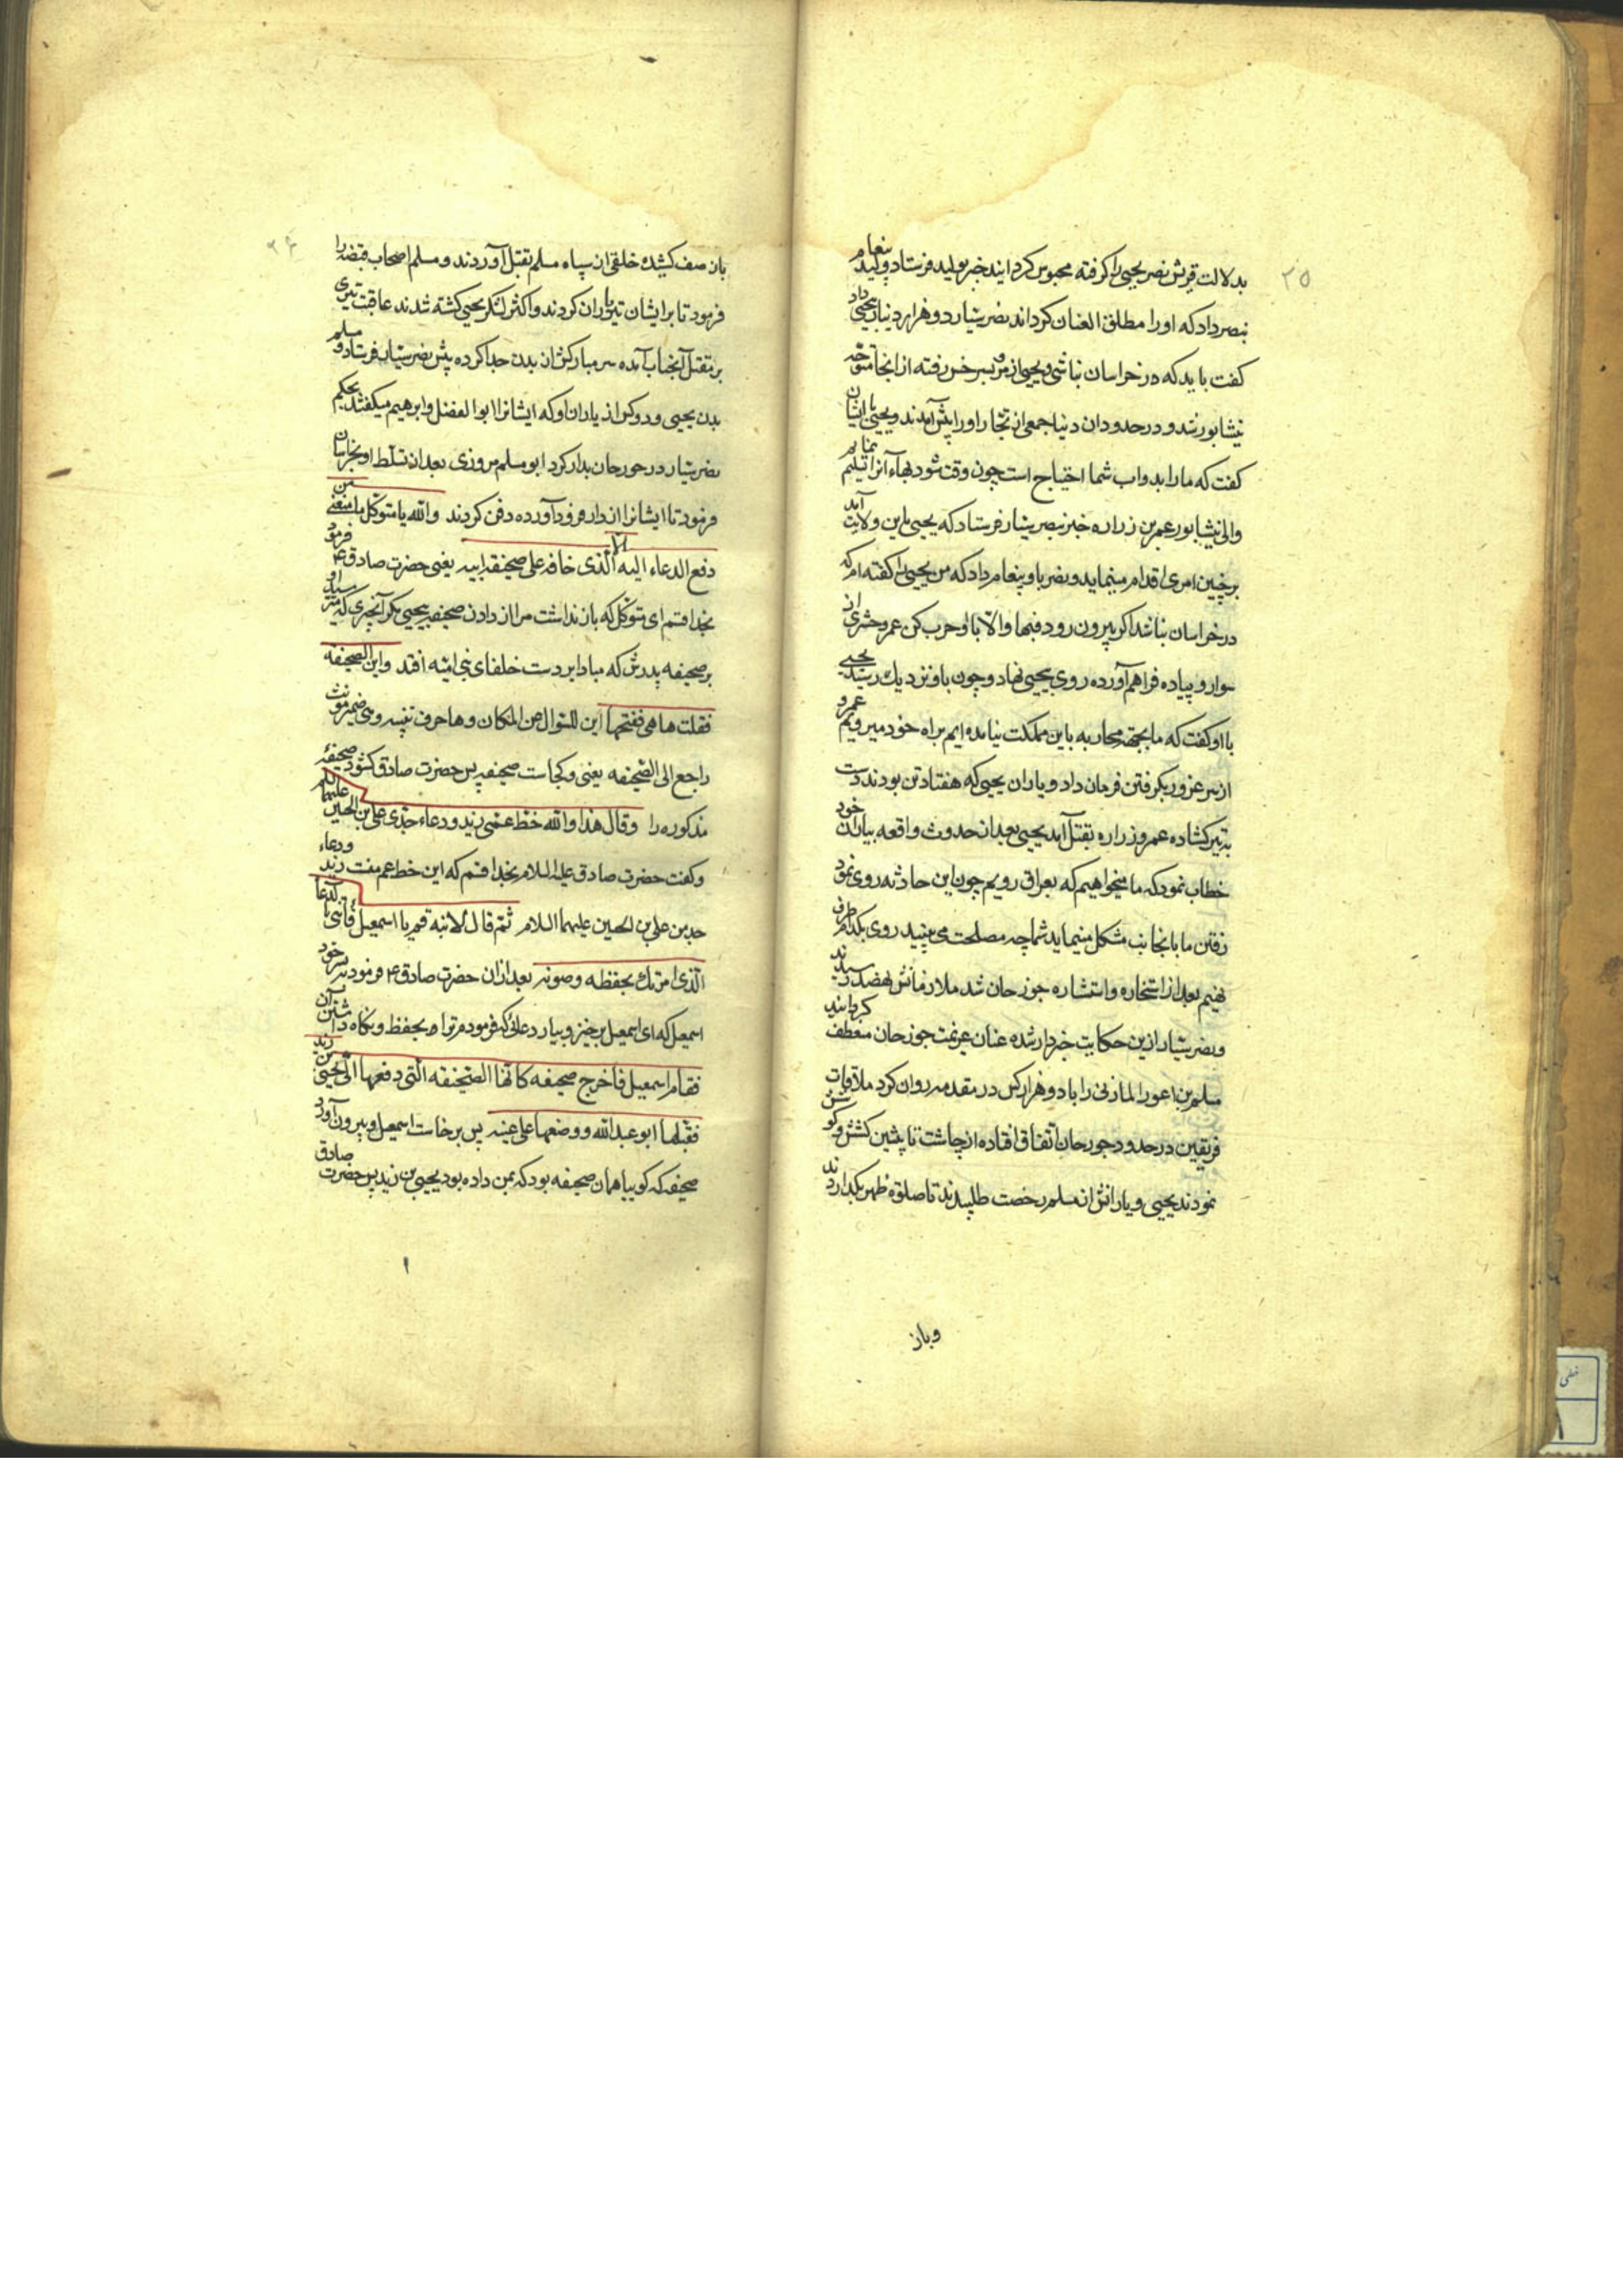 ۲۵
بدلالت قریش نصر یحیی را کرفته محبوس کردانید خبر بولید فرستاد ولید پیغام
بنصر داد که او را مطلق العنان کرداند نصر سیار دو هزار دینار بیحیی داد
کفت باید که در خراسان نباشی و یحیی از مرو بسرخس رفته از انجا متوجه
نیشابور شد و در حدود ان دنیا جمعی از تجار او را پیش آمدند و یحیی با ایشان
کفت که ما را بدواب شما احتیاج است چون وقت شود بهاء آنرا تسلیم نمایم
والی نیشابور عمر بن زراره خبر بنصر سیار فرستاد که یحیی باین ولایت آمد
بر چنین امری اقدام مینماید و نصر باو پیغام داد که من یحیی را کفته ام که
در خراسان نباشد اکر بیرون رود فبها والا با او حرب کن عمرو حشری از
سوار و پیاده فراهم آورده روی بیحیی نهاد و چون باو نزدیک رسید یحیی
با او کفت که ما بجهة محاربه باین مملکت نیامده ایم براه خود میرویم عمرو
از سر غرور بکرفتن فرمان داد و یاران یحیی که هفتاد تن بودند دست
به تیر کشاده عمرو زراره بقتل آمد یحیی بعد از حدوث واقعه بیاران خود
خطاب نمود که ما میخواهیم که بعراق رویم چون این حادثه روی نمود
رفتن ما بانجانب مشکل مینماید شما چه مصلحت می بینید روی بکدام طرف
نهیم بعد از استخاره و استشاره جوزجان شد ملازمانش بهفصد رسیدند
و نصر سیار ازین حکایت خبردار شده عنان عزیمت جوزجان منعطف کردانید
مسلم بن اعور المازنی را با دو هزار کس در مقدمه روان کرد ملاقات
فریقین در حدود جوزجان اتفاق افتاده از چاشت تا پیشین کشش و کوشش
نمودند یحیی و یارانش از مسلم رخصت طلبیدند تا صلوة ظهر بکذارند
و باز
۲۶
باز صف کشیده خلقی از سپاه مسلم بقتل آوردند و مسلم اصحاب قبضه را
فرمود تا بر ایشان تیر باران کردند و اکثر لشکر یحیی کشته شدند عاقبت تیری
بر مقتل آنجناب آمده سر مبارکش از بدن جدا کرده پیش نصر سیار فرستاد و مسلم
بدن یحیی و دو کس از یاران او که ایشانرا ابو الفضل و ابرهیم میکفتند بحکم
نصر سیار در جوزجان بدار کرد ابو مسلم مروزی بعد از تسلط او بخراسان
فرمود تا ایشانرا از دار فرود آورده دفن کردند والله یا متوکل ما منعنی من
دفع الدعاء الیه الا الذی خافه علی صحیفة ابیه یعنی حضرت صادق ع فرمود
بخدا قسم ای متوکل که باز نداشت مرا از دادن صحیفه بیحیی مکر آنچیزی که میترسید او
بر صحیفه پدرش که مبادا بر دست خلفای بنی امیه افتد و این الصحیفه
فقلت ها هی ففتحها این للسؤال عن المکان و ها حرف تنبیه و هی ضمیر مونث
راجع الی الصحیفه یعنی و کجاست صحیفه پس حضرت صادق کشود صحیفهٔ
مذکوره را و قال هذا والله خط عمی زید و دعاء جدی علی بن الحسین علیهما السلم
و کفت حضرت صادق علیه السلام بخدا قسم که این خط عم منت زید و دعاء
جد من علی بن الحسین علیهما السلام ثم قال لابنه قم یا اسمعیل فأتنی بالدعا
الذی امرتک بحفظه و صونه بعد ازان حضرت صادق ع فرمود بپسر خود
اسمعیل که ای اسمعیل برخیز و بیار دعائی که فرمودم ترا بحفظ و نکاه داشتن آن
فقام اسمعیل فاخرج صحیفه کانها الصحیفه التی دفعها الی یحیی بن زید
فقبلها ابو عبدالله و وضعها علی عینیه پس برخاست اسمعیل و بیرون آورد
صحیفه که کوییا همان صحیفه بود که بمن داده بود یحیی بن زید پس حضرت صادق
۱
خطی
۱